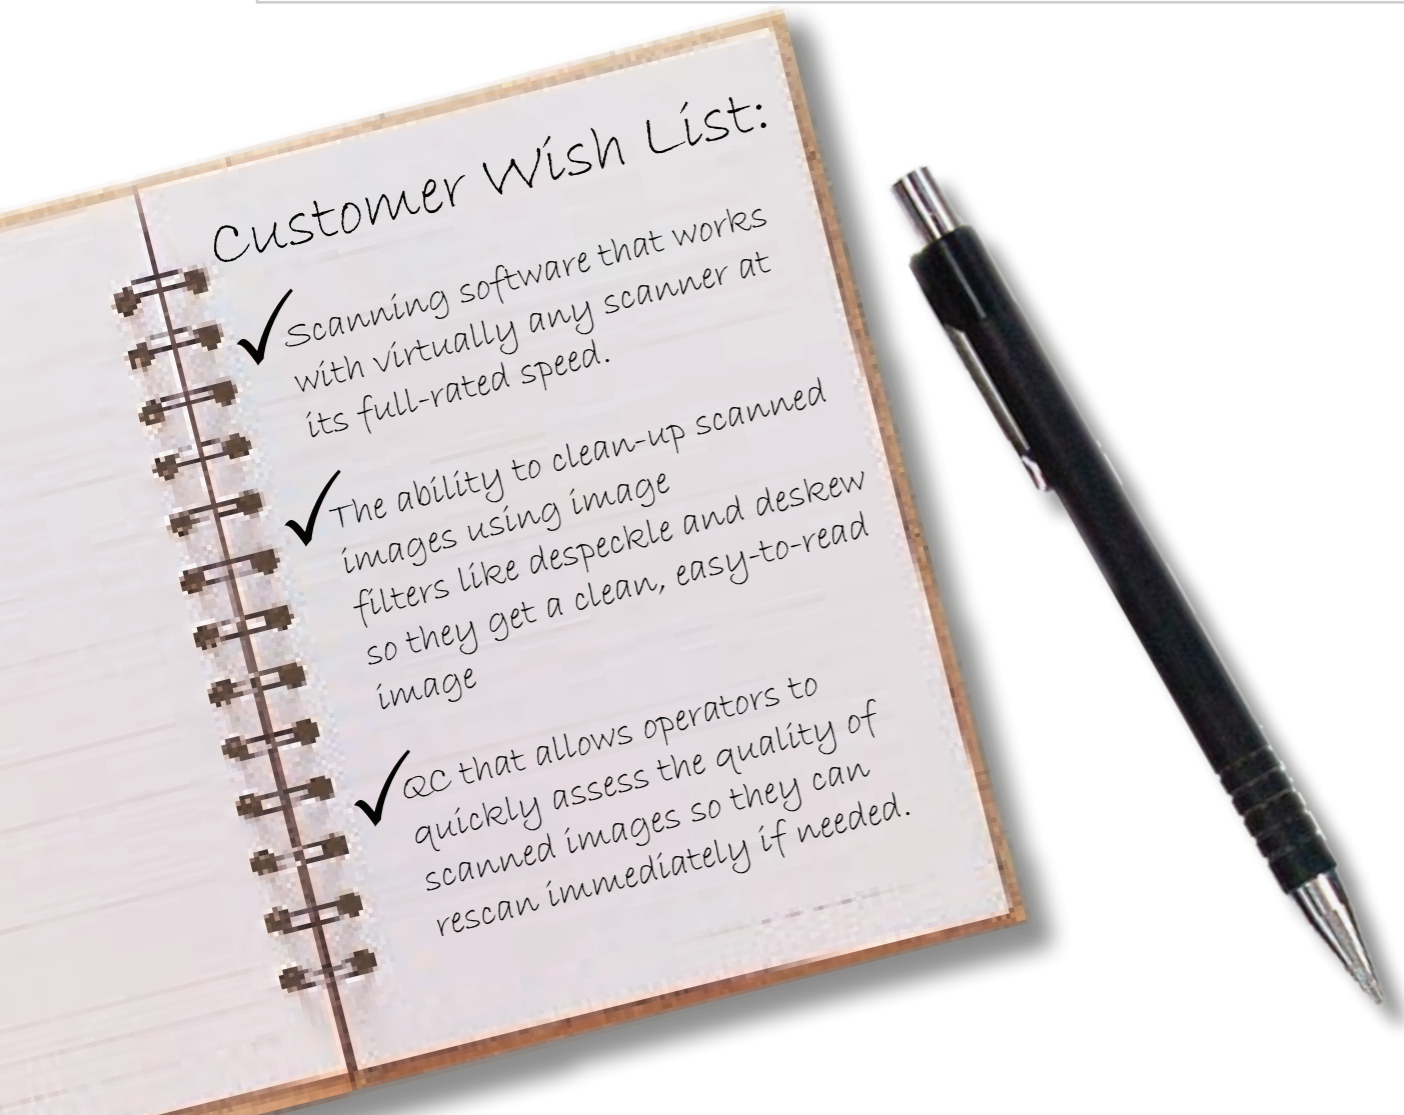 Customer Wish List:
Scanning software that works
with virtually any scanner at
its full-rated speed.
The ability to clean-up scanned
images using image
filters like despeckle and deskew
so they get a clean, easy-to-read
image
QC that allows operators to
quickly assess the quality of
scanned images so they can
rescan immediately if needed.